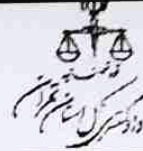 قوه قضائیه
دادگستری کل استان تهران